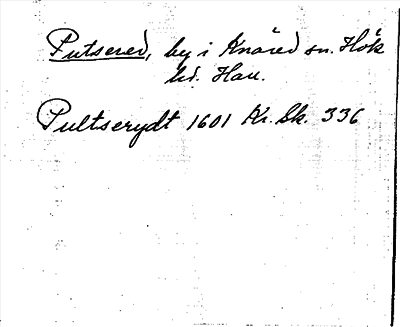 Putsered, by i Knäred sn. Hök
hd. Hall.
Pultserydt 1601 Kr. Sk. 336